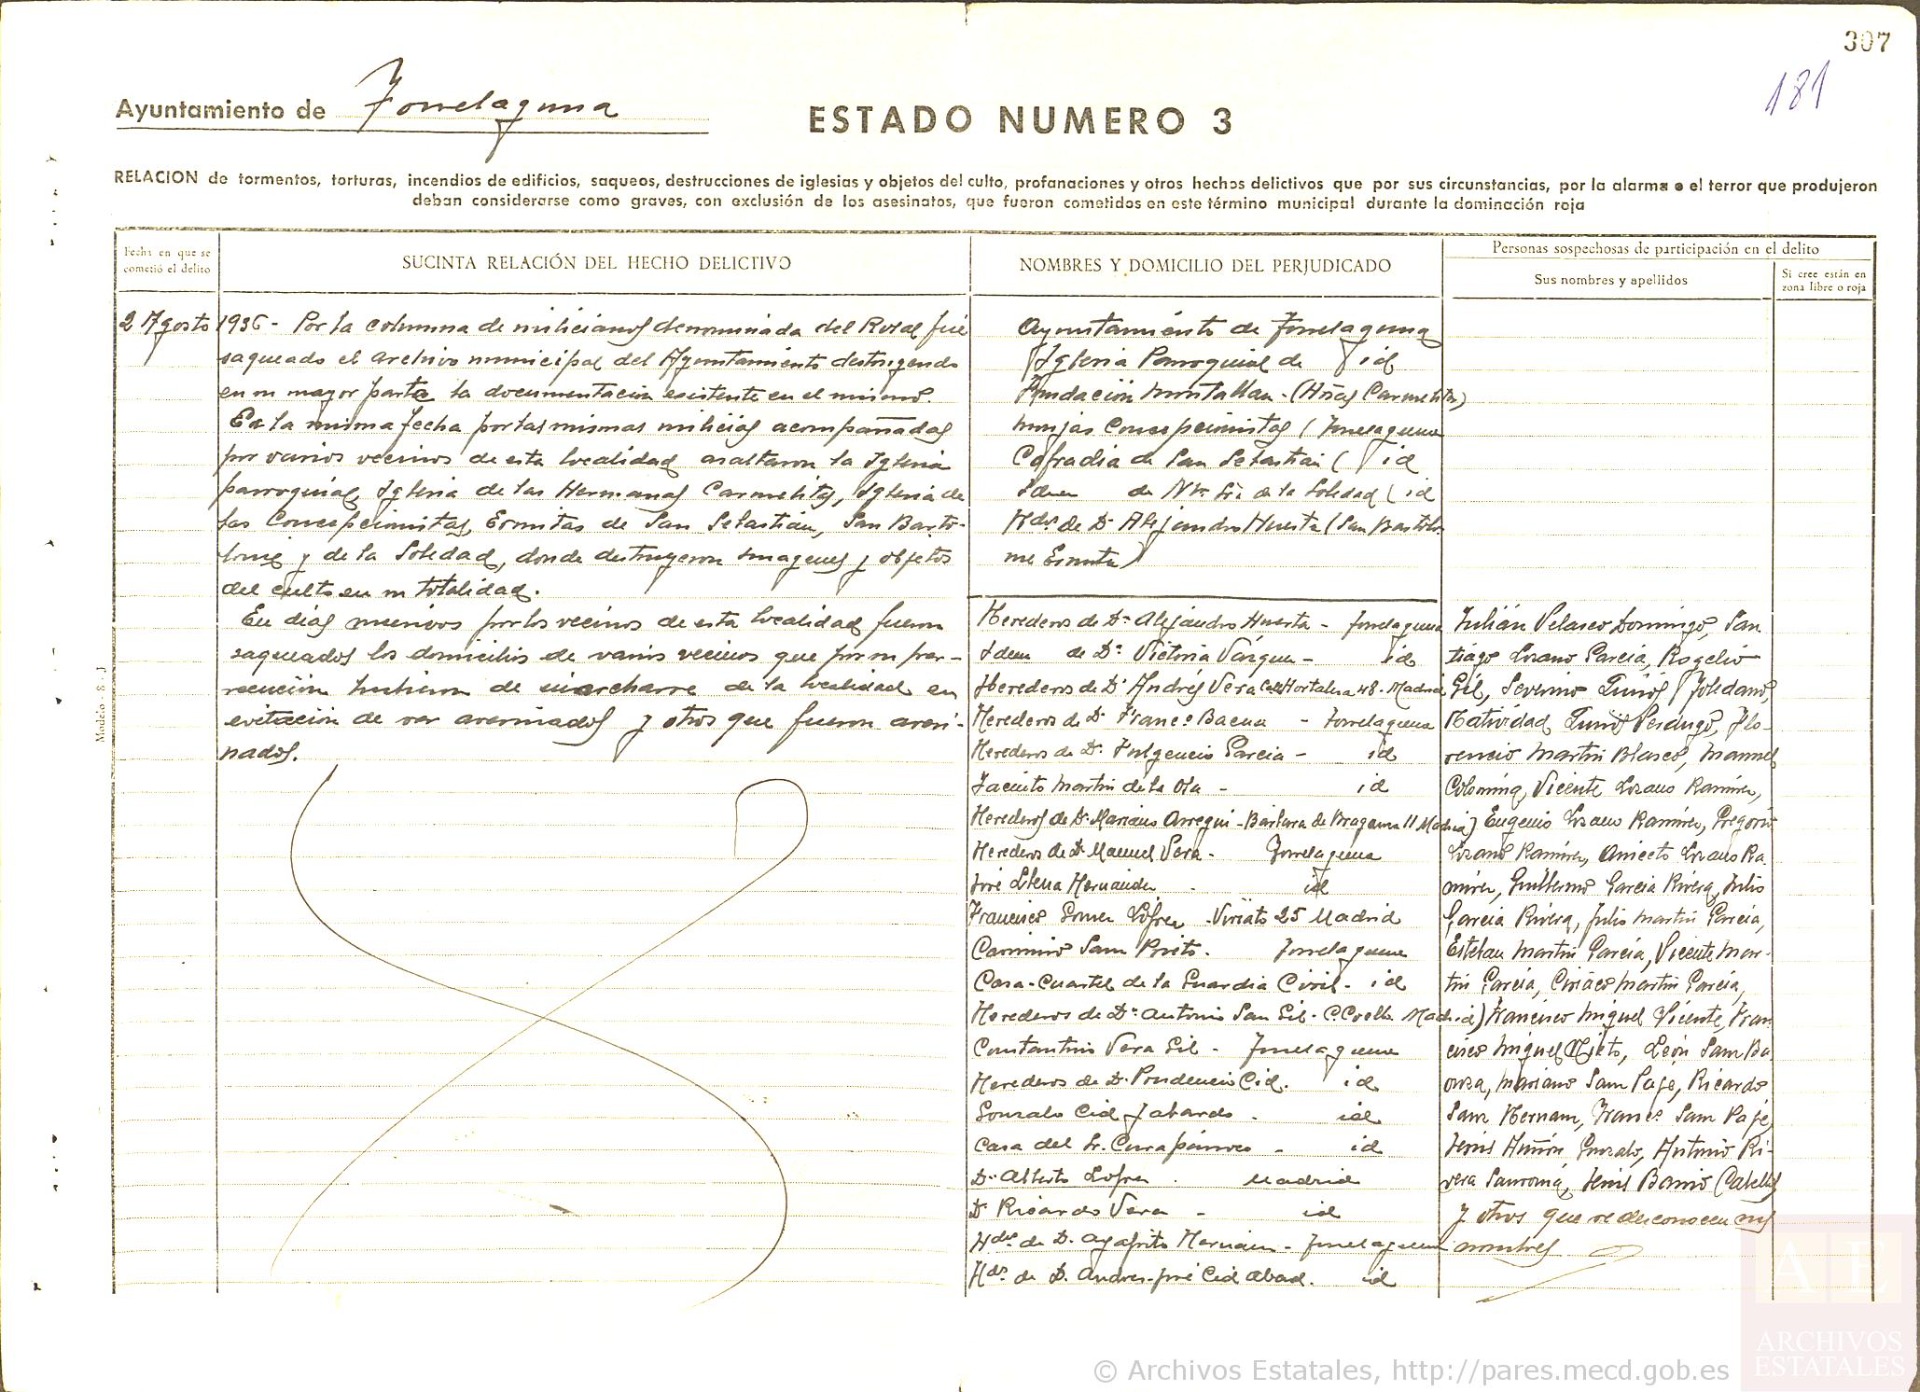 307
181
Ayuntamiento de Torrelaguna
ESTADO NUMERO 3
RELACION de tormentos, torturas, incendios de edificios, saqueos, destrucciones de iglesias y objetos del culto, profanaciones y otros hechos delictivos que por sus circunstancias, por la alarma o el terror que produjeron
deban considerarse como graves, con exclusión de los asesinatos, que fueron cometidos en este término municipal durante la dominación roja
Fecha en que se
cometió el delito
SUCINTA RELACIÓN DEL HECHO DELICTIVO
NOMBRES Y DOMICILIO DEL PERJUDICADO
Personas sospechosas de participación en el delito
Sus nombres y apellidos
Si cree están en
zona libre o roja
2 Agosto 1936 - Por la columna de milicianos denominada del Rosal fué
saqueado el archivo municipal del Ayuntamiento destruyendo
en su mayor parte la documentacion existente en el mismo.
En la misma fecha por las mismas milicias acompañadas
por varios vecinos de esta localidad asaltaron la Iglesia
parroquial, Iglesia de las Hermanas Carmelitas, Iglesia de
las Concepcionistas, Ermitas de San Sebastián, San Barto-
lomé y de la Soledad, donde destruyeron imagenes y objetos
del culto en su totalidad.
En dias sucesivos por los vecinos de esta localidad fueron
saqueados los domicilios de varios vecinos que por su per-
secución hubieron de marcharse de la localidad en
evitación de ser asesinados y otros que fueron asesi-
nados.
Ayuntamiento de Torrelaguna
Iglesia Parroquial de id
Fundación Montalban - (Hñas Carmelitas)
Monjas Concepcionistas (Torrelaguna
Cofradia de San Sebastian ( id
Idem de Ntra Sra de la Soledad ( id
Hdos de Dn Alejandro Huerta (San Bartolo-
me Ermita)
Herederos de Dn Alejandro Huerta - Torrelaguna
Idem de Da Victoria Vazquez - id
Herederos de Dn Andrés Vera Calle Hortaleza 48 - Madrid
Herederos de Dn Francº Baena - Torrelaguna
Herederos de Dn Fulgencio Garcia - id
Jacinto Martin de la Ota - id
Herederos de Dn Mariano Arregui - Bárbara de Braganza 11 Madrid)
Herederos de Dn Manuel Vera - Torrelaguna
José Llena Hernández - id
Francisco Lofrea - Viriato 25 Madrid
Casimiro Sanz Prieto. Torrelaguna
Casa-Cuartel de la Guardia Civil - id
Herederos de Dn Antonio San Gil - C. Coello Madrid)
Constantino Vera Gil - Torrelaguna
Herederos de Dn Prudencio Cid. id
Gonzalo Cid Jabardo - id
Casa del Sr. Cura párroco - id
Dn Alberto Madrid
Dn Ricardo Vera - id
Hdos de D. Agapito Hernán - Torrelaguna
Hdos de D. Andres-José Cid Abad. id
Julián Velasco Domingo, San
tiago Lozano Garcia, Rogelio
Gil, Severino Toledano,
Natividad Perdugo, Flo-
rencio Martin Blasco, Manuel
Colomina, Vicente Lozano Ramirez,
Eugenio Lozano Ramirez, Gregorio
Lozano Ramirez, Aniceto Lozano Ra-
mirez, Guillermo Garcia Rivera, Julio
Garcia Rivera, Julio Martin Garcia,
Esteban Martin Garcia, Vicente Mar-
tin Garcia, Ciriaco Martin Garcia,
Francisco Miguel Vicente, Fran
cisco Miguel Nieto, León Sanz Ba
onza, Mariano Sanz Paje, Ricardo
Sanz Hernanz, Francº Sanz Paje,
Gonzalo, Antonio Ri-
vera
y otros que se desconocen sus
nombres
Modelo - 8 - J
© Archivos Estatales, http://pares.mecd.gob.es
AE
ARCHIVOS
ESTATALES